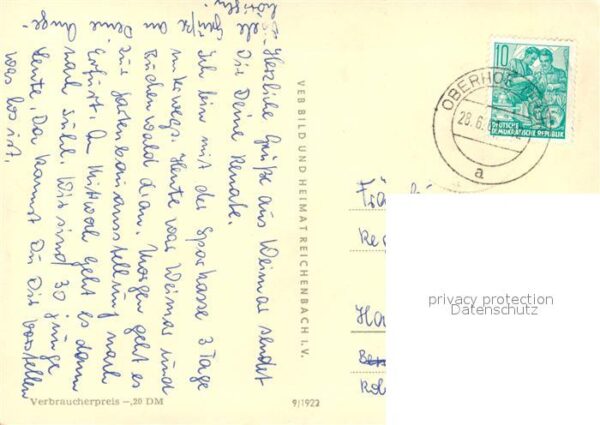 Herzliche Grüße aus Weimar sendet
Dir Deine Renate.
Ich bin mit der Sparkasse 3 Tage
unterwegs. Heute war Weimar und
Buchenwald dran. Morgen geht es
zur Gartenbauausstellung nach
Erfurt. Am Mittwoch geht es dann
nach Suhl. Wir sind 30 junge
Leute. Da kannst Du Dir vorstellen
was los ist.
Viele Grüße an
Deine
VEB BILD UND HEIMAT REICHENBACH I. V.
Verbraucherpreis –,20 DM
9/1922
10
DEUTSCHE
DEMOKRATISCHE REPUBLIK
OBERHOF
28.6.
a
privacy protection
Datenschutz